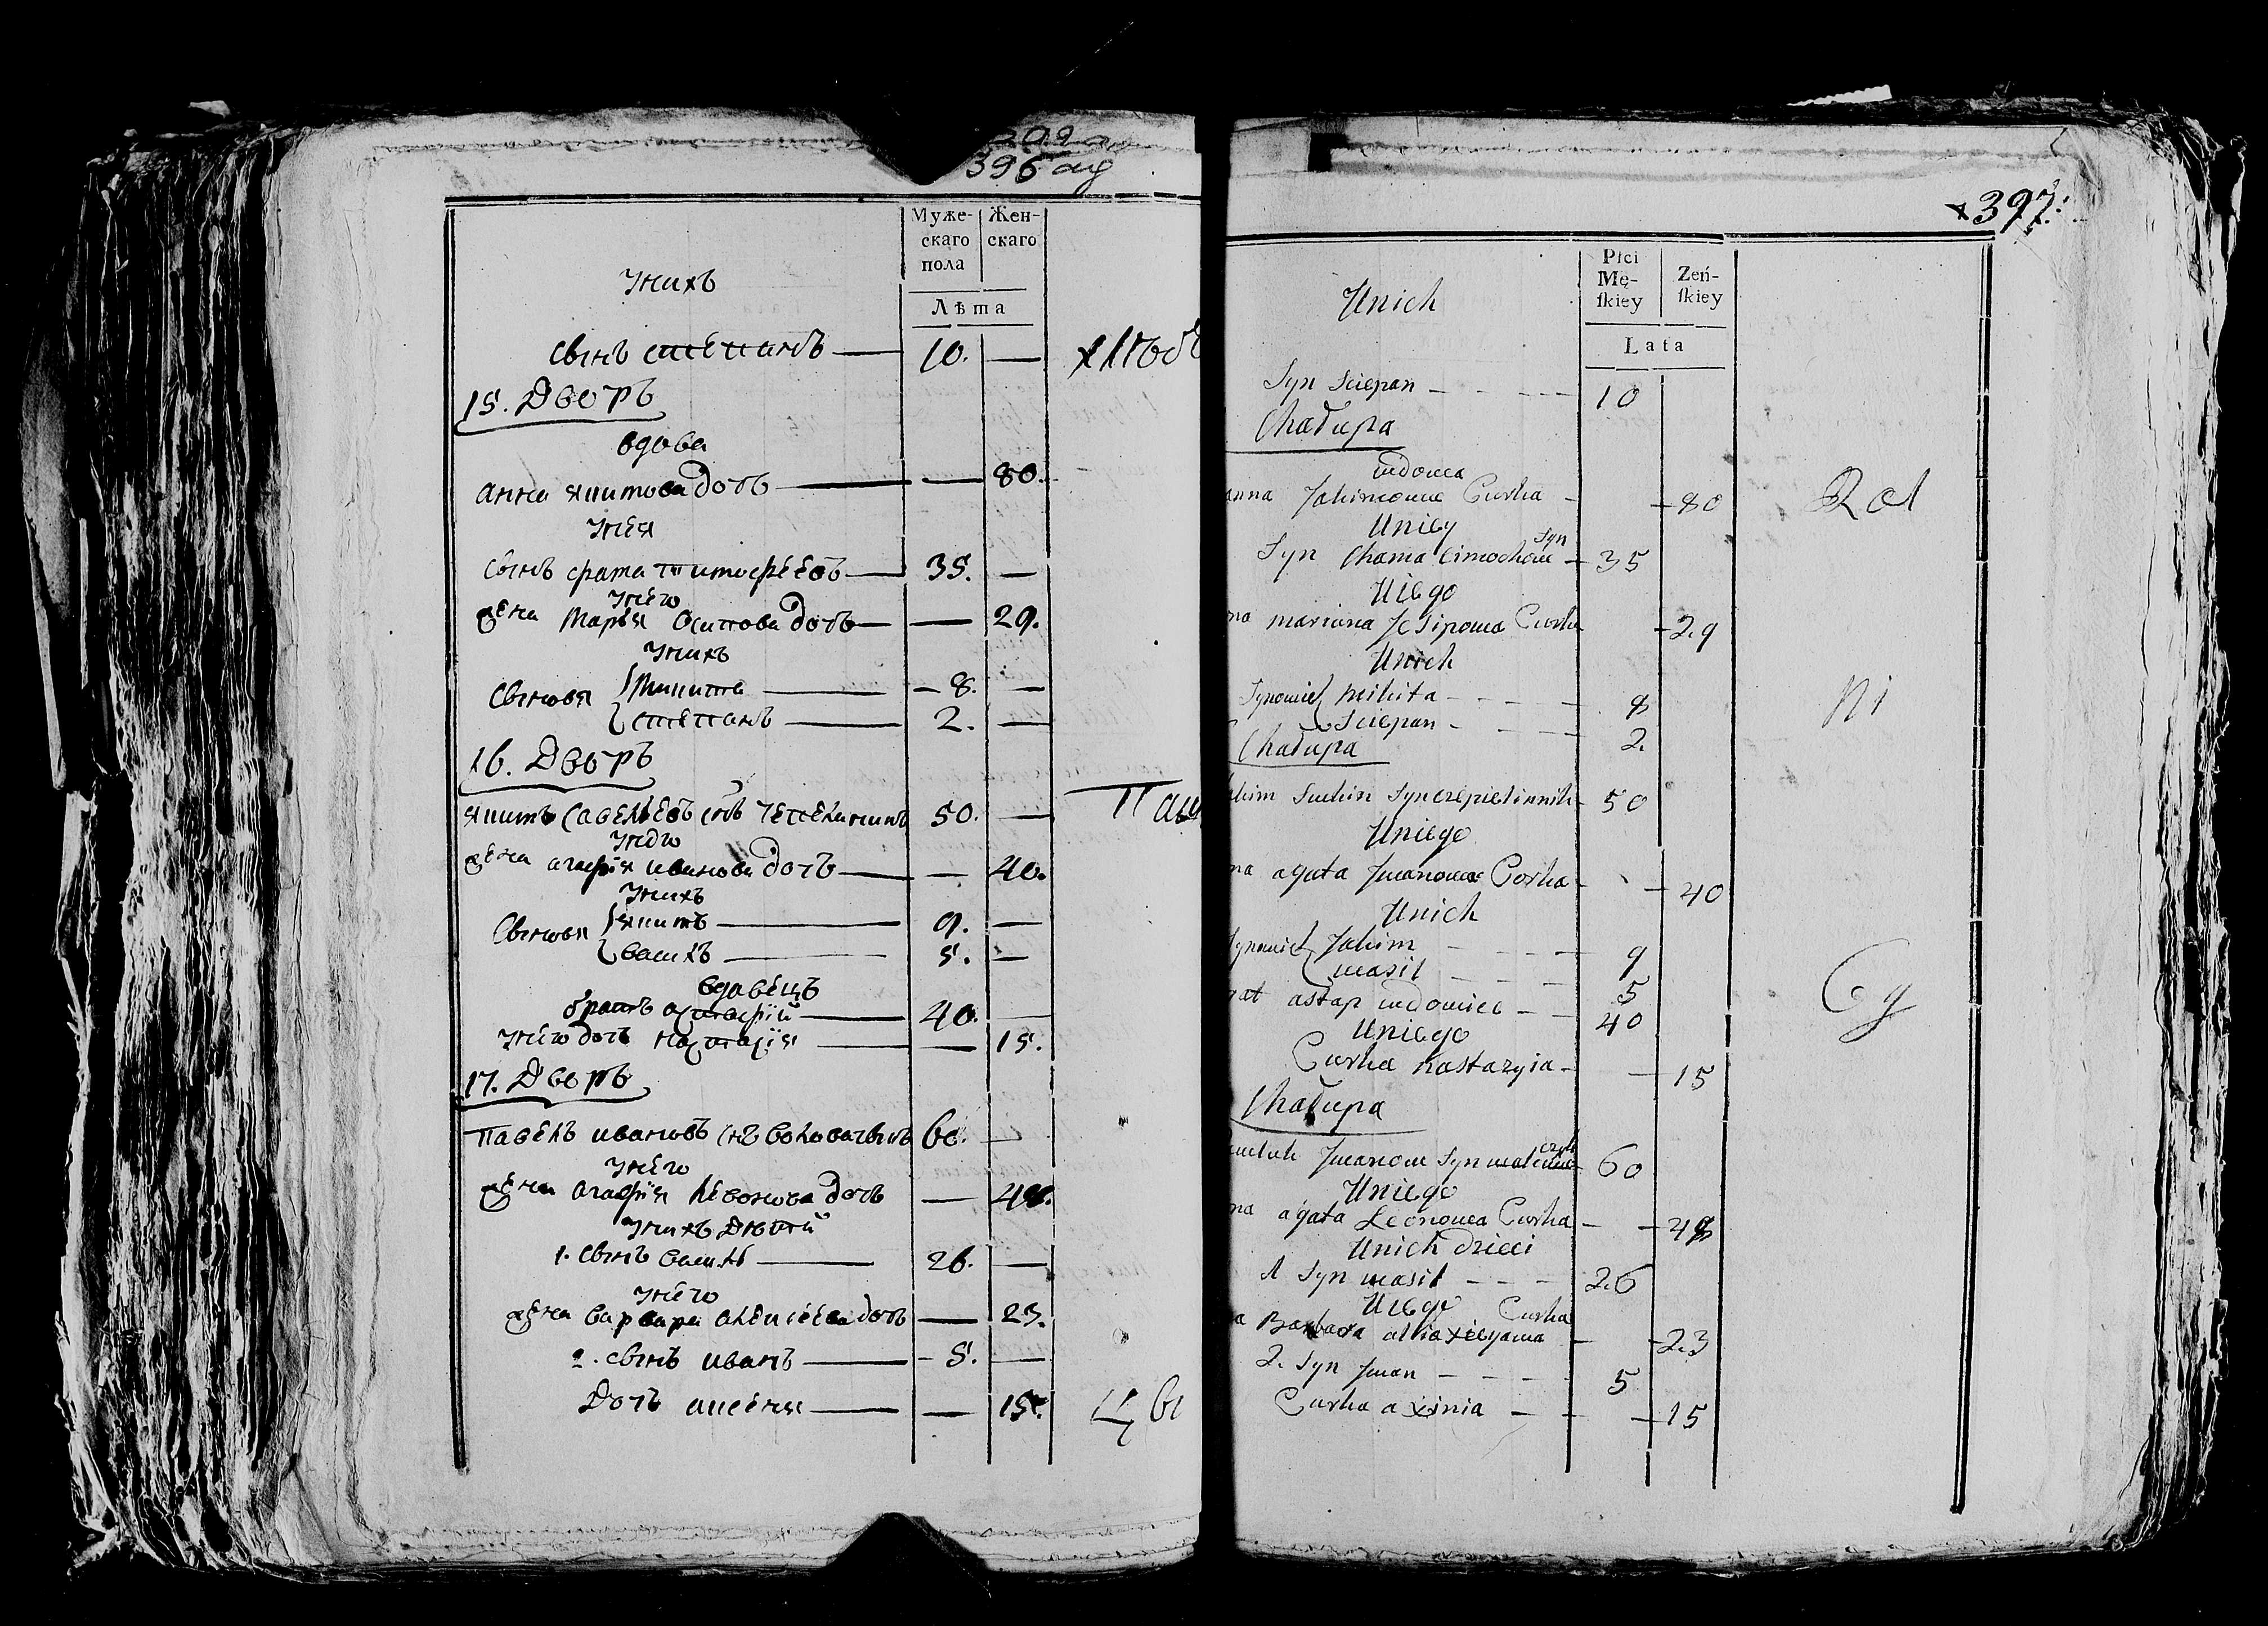 396 об
Муже-
скаго
пола
Жен-
скаго
Лѣта
Унихъ
сынъ степанъ — 10. —
15. Дворъ
вдова
анна якимова дочь — — 80.
Унея
сынъ фама тимофѣевъ — 35. —
Унего
жена Марья Осипова дочь — — 29.
Унихъ
сыновя Микита — 8. —
степанъ — 2. —
16. Дворъ
якимъ савельевъ снъ 50. —
Унего
жена агафія иванова дочь — — 40.
Унихъ
сыновя якимъ — 9. —
василь — 5. —
вдовецъ
братъ астафій — 40. —
Унего дочь настасія — — 15.
17. Дворъ
павелъ ивановъ снъ 60. —
Унего
жена агафія левонова дочь — 48.
Унихъ дѣтей
1. сынъ василь — 26. —
Унего
жена варвара алексеева дочь — 23.
2. сынъ иванъ — 5. —
Дочь аксеня — — 15.
хлѣбо
Паш
Цы
397.
Płci
Mę-
ſkiey
Zeń-
ſkiey
Lata
Unich
Syn Sciepan - - - - 10
Chałupa
wdowa
anna Jakimowa Curka - - 80
Uniey
Syn Chama Cimochow Syn - 35
Uiego
na mariana Josipowa Curka - 29
Unich
Synowie mikita - - - - 8
Sciepan - - - - 2.
Chałupa
kim Syn 50
Uniego
na agata Jwanowa Curka - - 40
Unich
Synowie Jakim - - - - 9
wasil - - - 5
rat astap wdowiec - - 40
Uniego
Curka nastazyia - - 15
Chałupa
Jwanow Syn 60
Uniego
na agata Leonowa Curka - - 48
Unich dzieci
1 Syn wasil - - - 26
Uiego
a Barbara aliaxieyawa Curka - - 23
2. Syn Jwan - - - - 5
Curka axinia - - - 15
Rol
ni
Cy